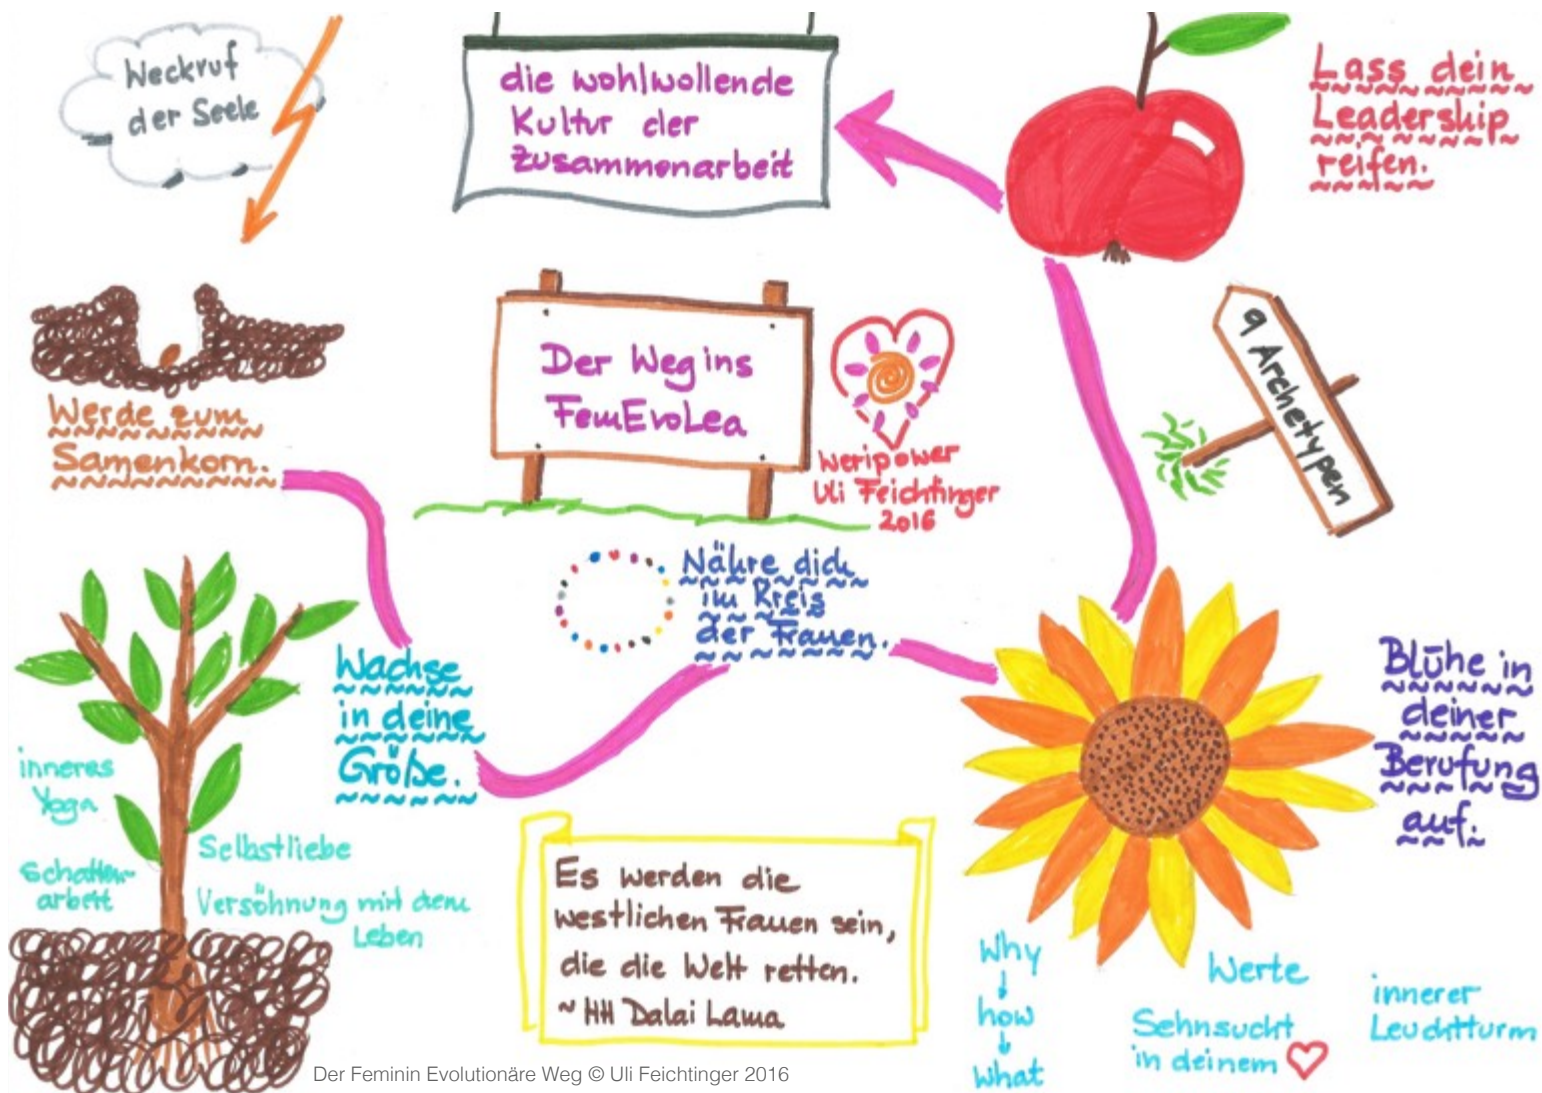 Weckruf
der Seele
die wohlwollende
Kultur der
Zusammenarbeit
Lass dein
Leadership
reifen.
Werde zum
Samenkorn.
Der Weg ins
FemEvoLea
Weripower
Uli Feichtinger
2016
9 Archetypen
Nähre dich
im Kreis
der Frauen.
Wachse
in deine
Größe.
Blühe in
deiner
Berufung
auf.
inneres
Yoga
Schatten-
arbeit
Selbstliebe
Versöhnung mit dem
Leben
Es werden die
westlichen Frauen sein,
die die Welt retten.
~ HH Dalai Lama
Why
↓
how
↓
What
Werte
Sehnsucht
in deinem ♡
innerer
Leuchtturm
Der Feminin Evolutionäre Weg © Uli Feichtinger 2016